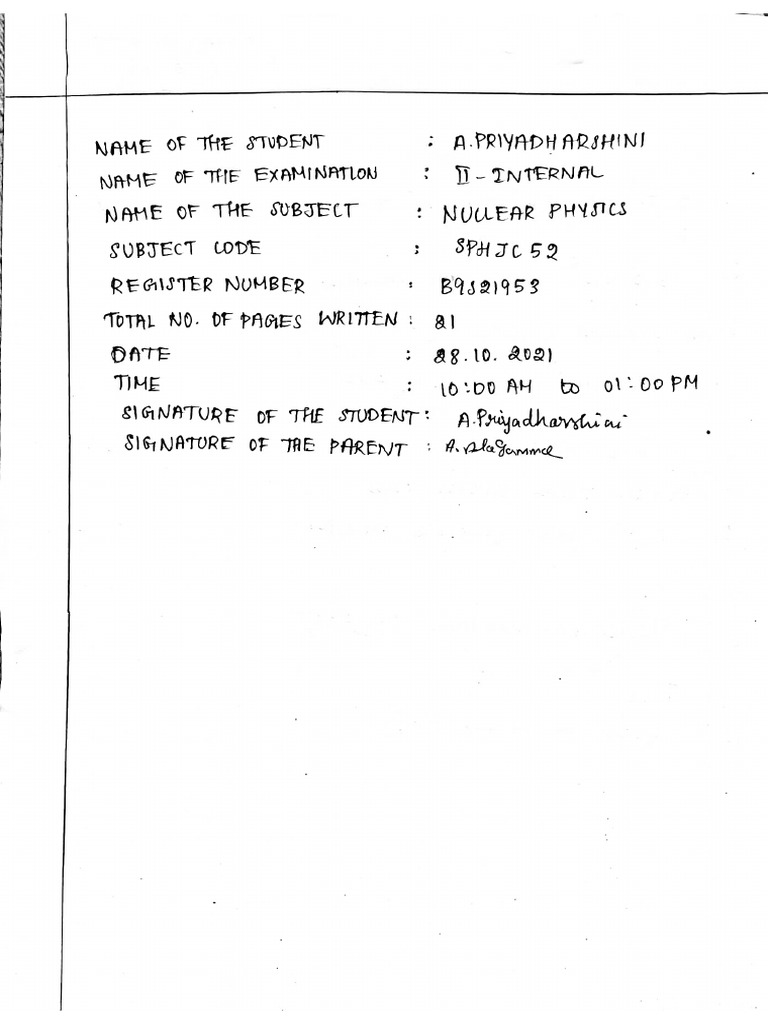 NAME OF THE STUDENT : A.PRIYADHARSHINI
NAME OF THE EXAMINATION : II - INTERNAL
NAME OF THE SUBJECT : NUCLEAR PHYSICS
SUBJECT CODE : SPHJC52
REGISTER NUMBER : B9S21953
TOTAL NO. OF PAGES WRITTEN : 21
DATE : 28.10.2021
TIME : 10:00 AM to 01:00 PM
SIGNATURE OF THE STUDENT : A.Priyadharshini
SIGNATURE OF THE PARENT : A.